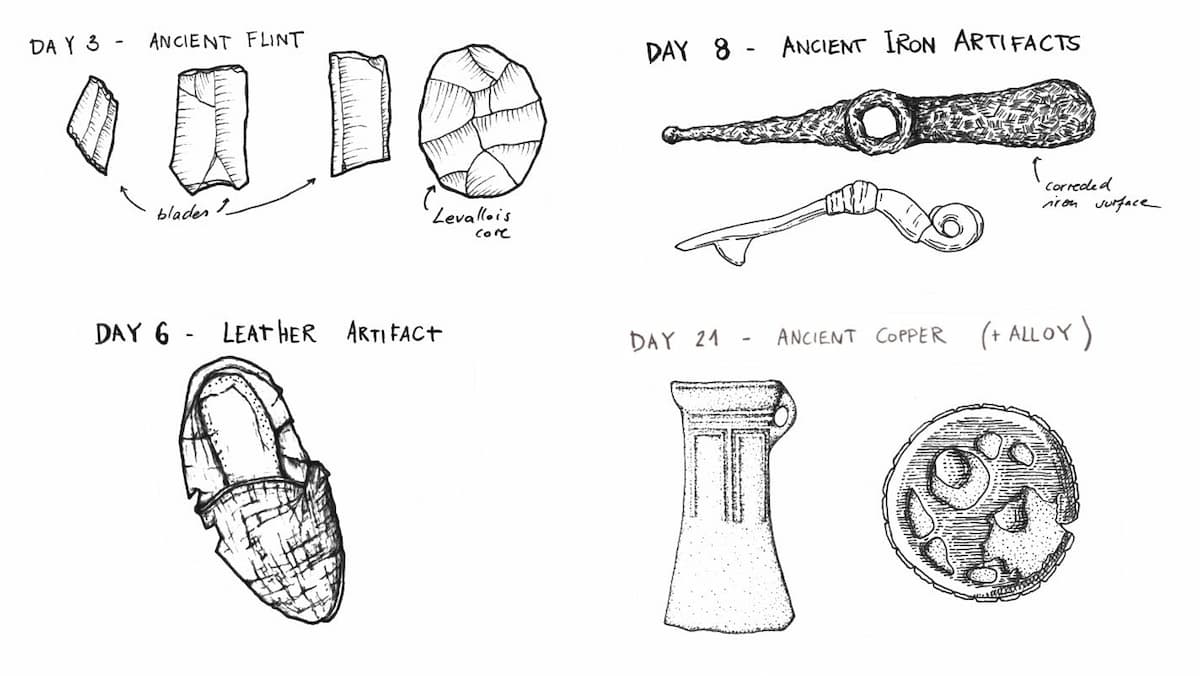 DAY 3 - ANCIENT FLINT
blades
Levallois
core
DAY 8 - ANCIENT IRON ARTIFACTS
correded
iron surface
DAY 6 - LEATHER ARTIFACT
DAY 21 - ANCIENT COPPER (+ ALLOY)